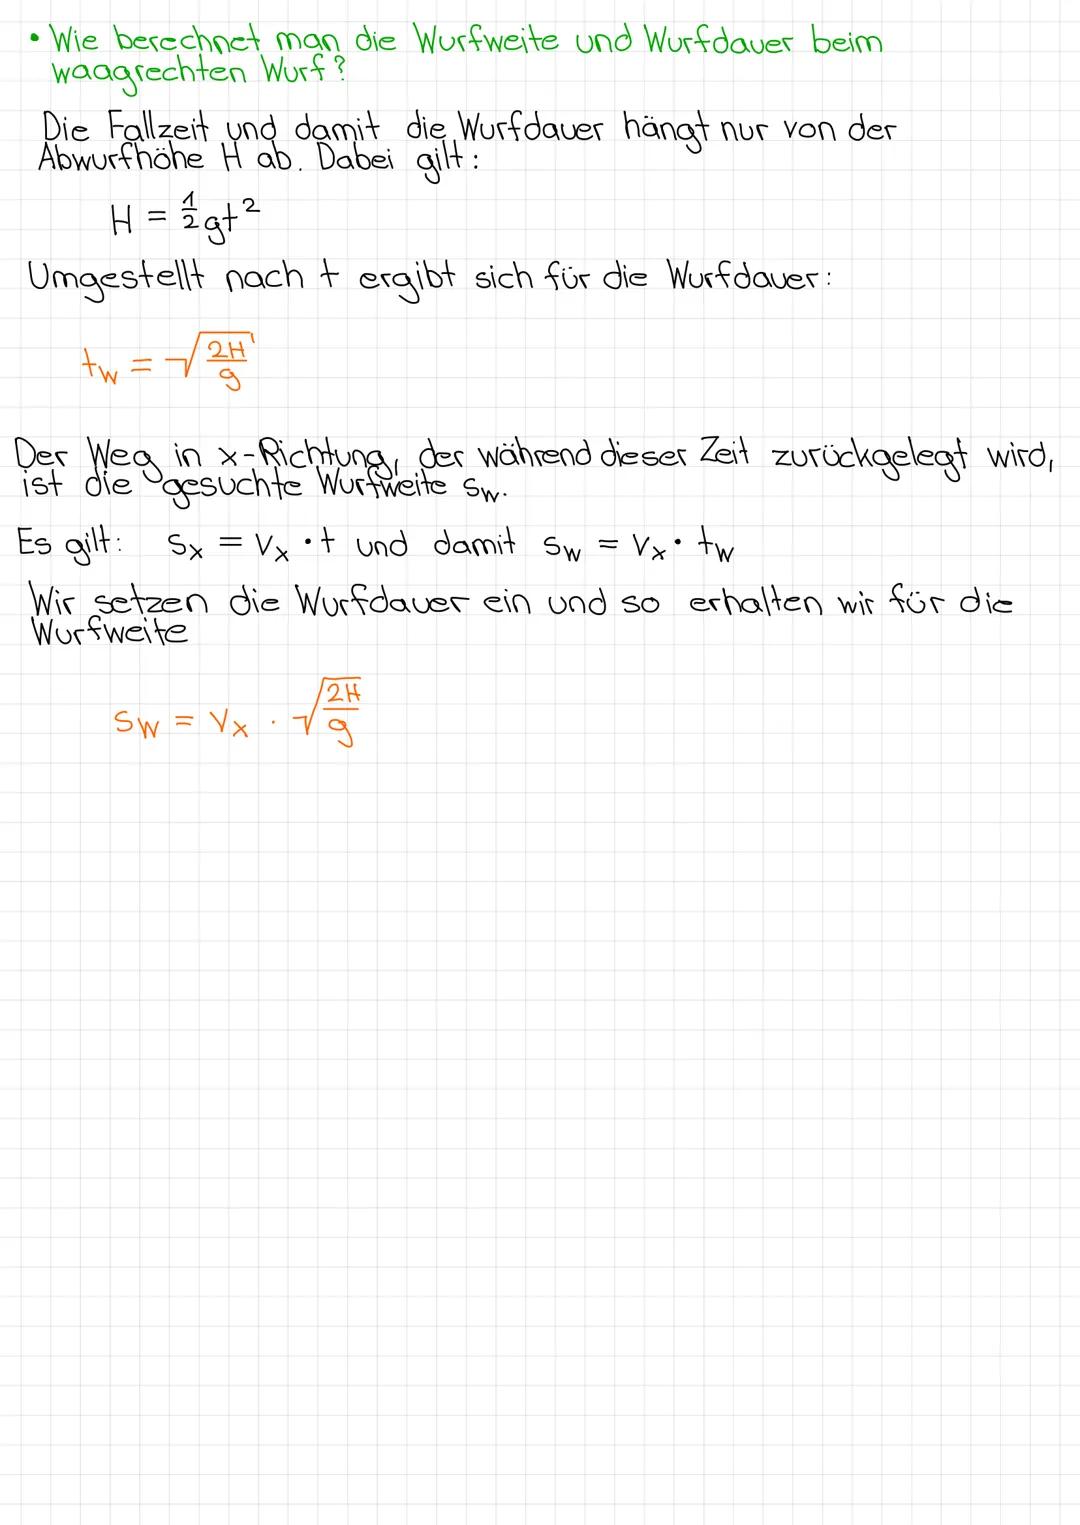 • Wie berechnet man die Wurfweite und Wurfdauer beim
waagrechten Wurf?
Die Fallzeit und damit die Wurfdauer hängt nur von der
Abwurfhöhe H ab. Dabei gilt:
H = 1/2 gt²
Umgestellt nach t ergibt sich für die Wurfdauer:
t_W = √(2H/g)
Der Weg in x-Richtung, der während dieser Zeit zurückgelegt wird,
ist die gesuchte Wurfweite s_W.
Es gilt: s_x = v_x · t und damit s_W = v_x · t_W
Wir setzen die Wurfdauer ein und so erhalten wir für die
Wurfweite
s_W = v_x · √(2H/g)